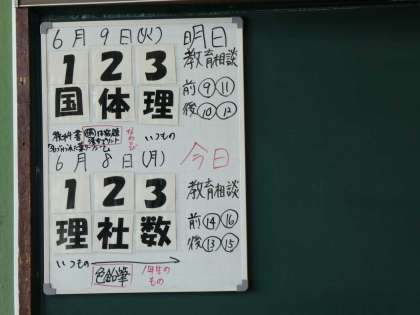 6月9日(火) 明日
1 2 3 教育相談
国 体 理 前 ⑨ ⑪
後 ⑩ ⑫
教科書 いつもの
6月8日(月) 今日
1 2 3 教育相談
理 社 数 前 ⑭ ⑯
後 ⑬ ⑮
いつもの
色鉛筆 1年生のもの